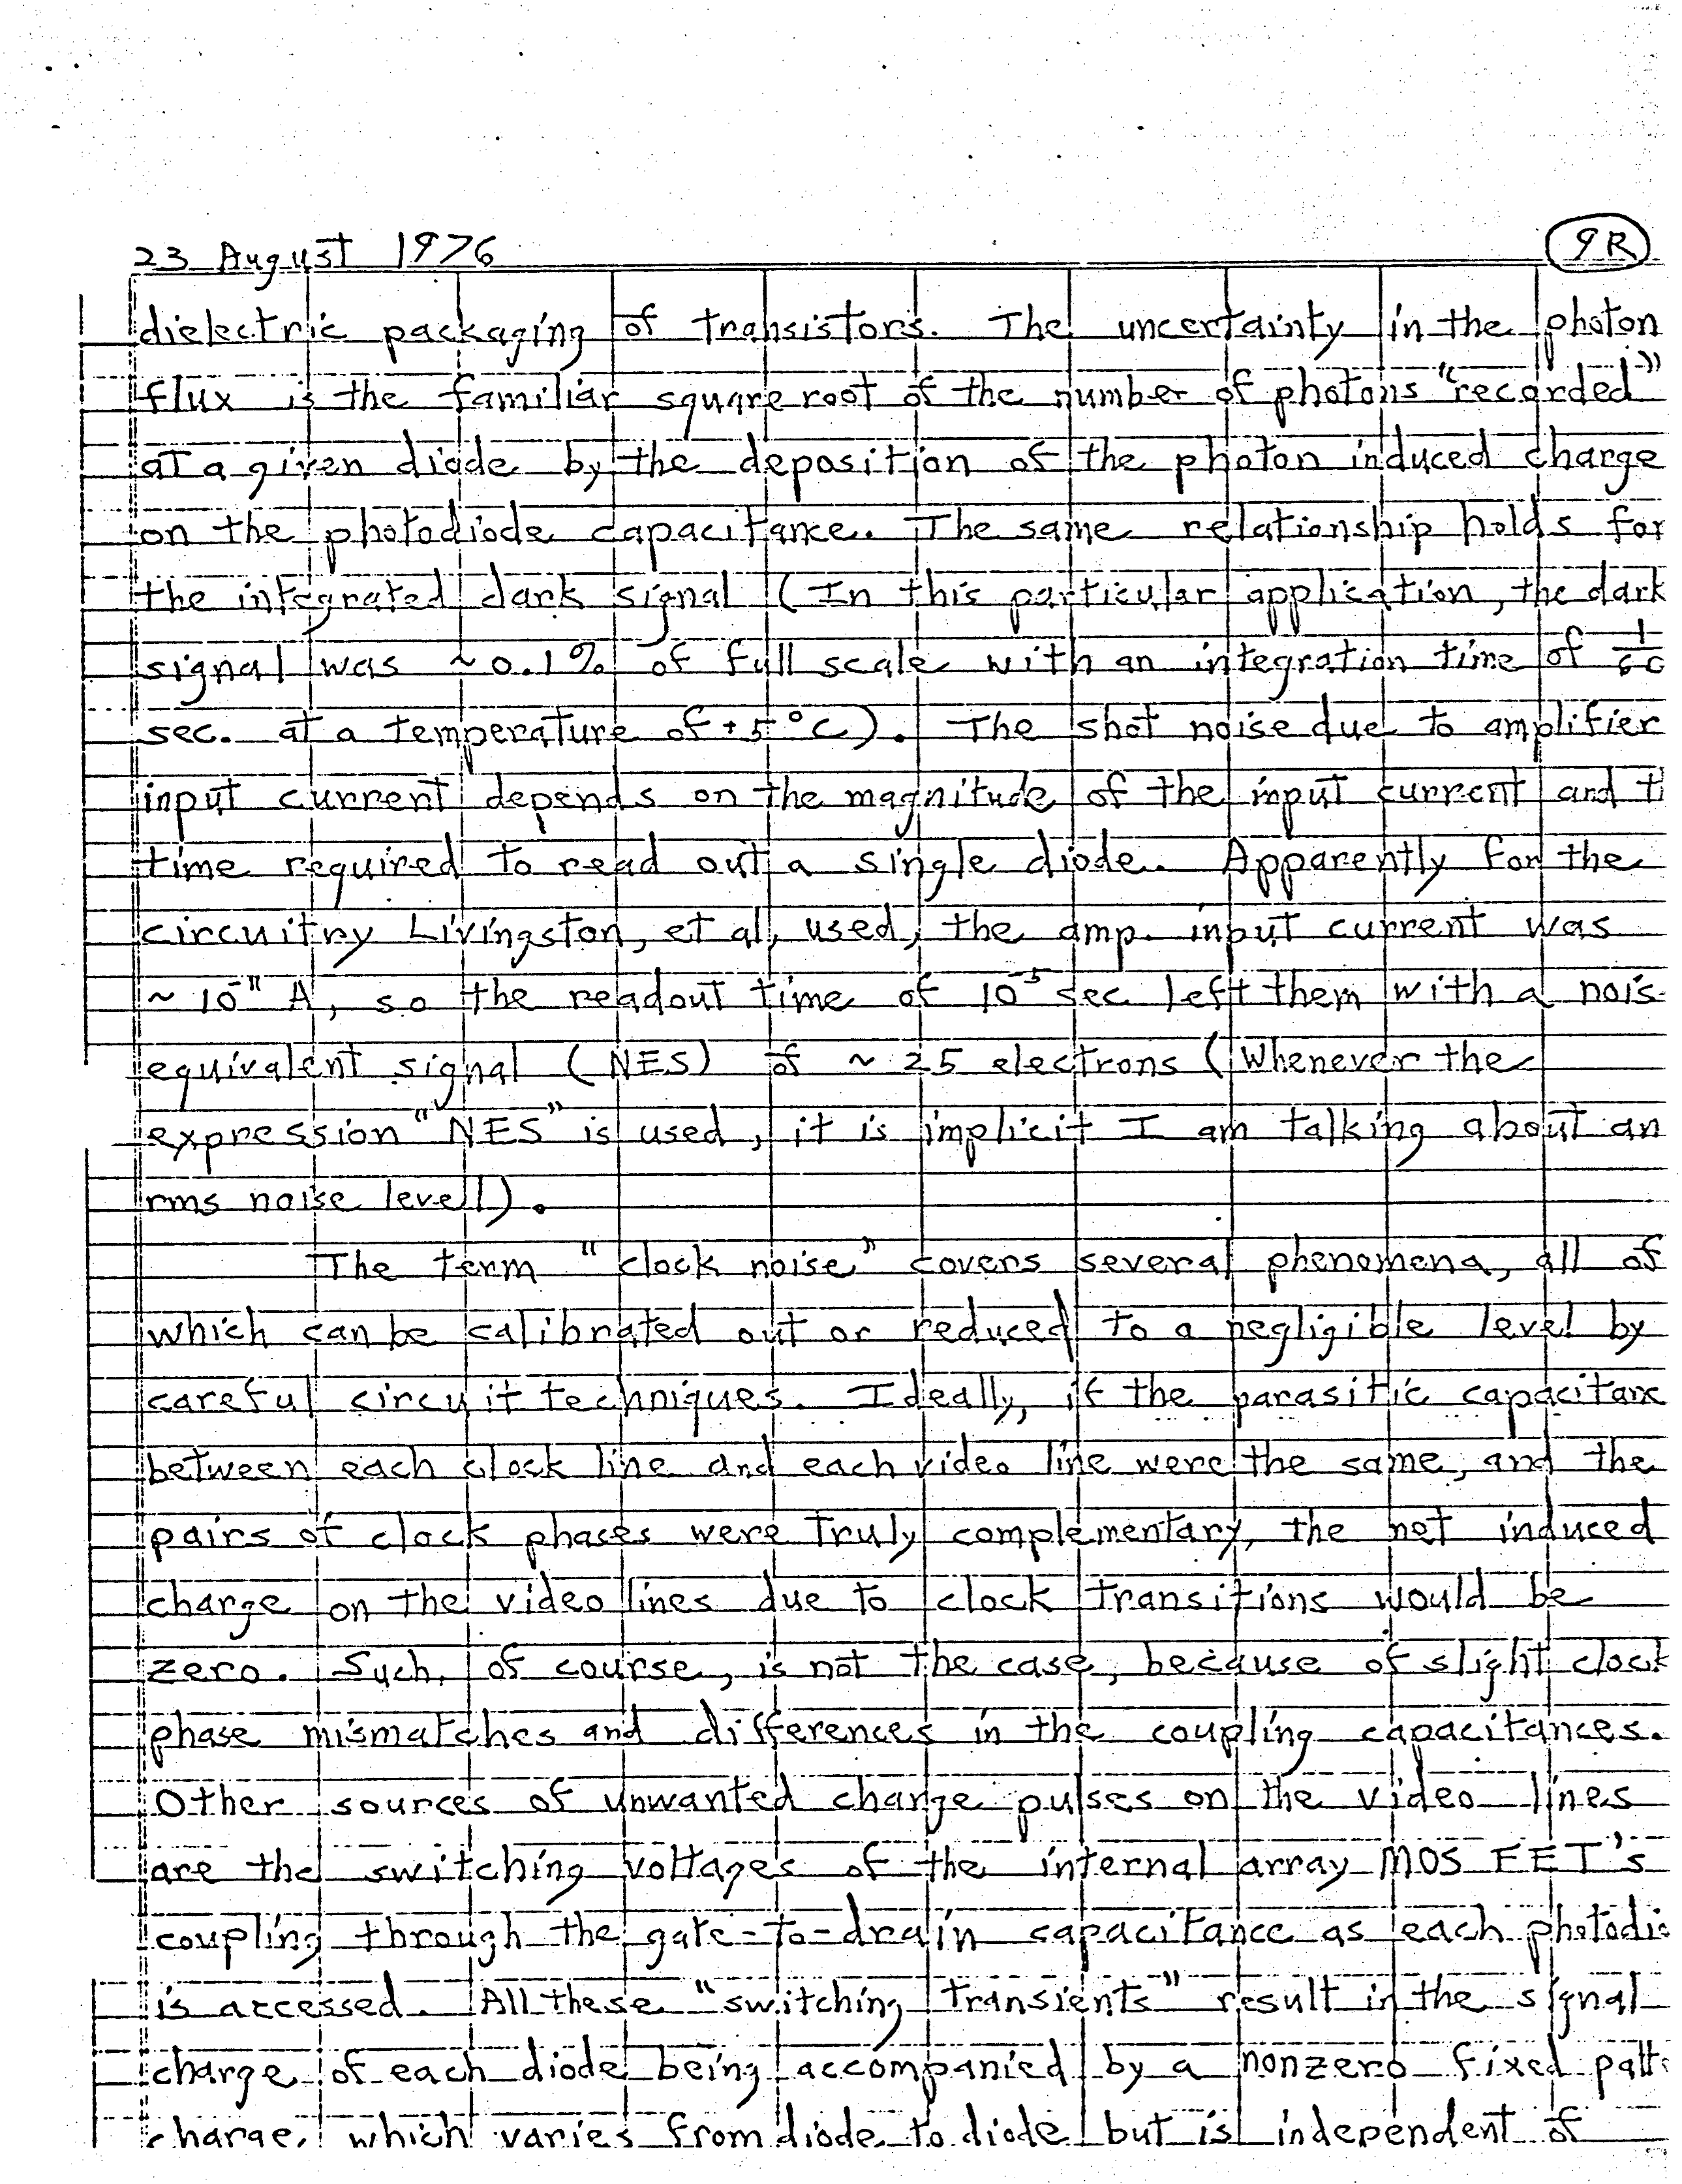 23 August 1976
9R
dielectric packaging of transistors. The uncertainty in the photon
flux is the familiar square root of the number of photons "recorded"
at a given diode by the deposition of the photon induced charge
on the photodiode capacitance. The same relationship holds for
the integrated dark signal (In this particular application, the dark
signal was ~0.1% of full scale with an integration time of 1/60
sec. at a temperature of +5°C). The shot noise due to amplifier
input current depends on the magnitude of the input current and t
time required to read out a single diode. Apparently for the
circuitry Livingston, et al, used, the amp. input current was
~ 10⁻¹¹ A, so the readout time of 10⁻⁵ sec left them with a nois
equivalent signal (NES) of ~ 25 electrons (Whenever the
expression "NES" is used, it is implicit I am talking about an
rms noise level).
The term "clock noise" covers several phenomena, all of
which can be calibrated out or reduced to a negligible level by
careful circuit techniques. Ideally, if the parasitic capacitanc
between each clock line and each video line were the same, and the
pairs of clock phases were truly complementary, the net induced
charge on the video lines due to clock transitions would be
zero. Such, of course, is not the case, because of slight clock
phase mismatches and differences in the coupling capacitances.
Other sources of unwanted charge pulses on the video lines
are the switching voltages of the internal array MOS FET's
coupling through the gate-to-drain capacitance as each photodio
is accessed. All these "switching transients" result in the signal
charge of each diode being accompanied by a nonzero fixed patte
charge, which varies from diode to diode but is independent of